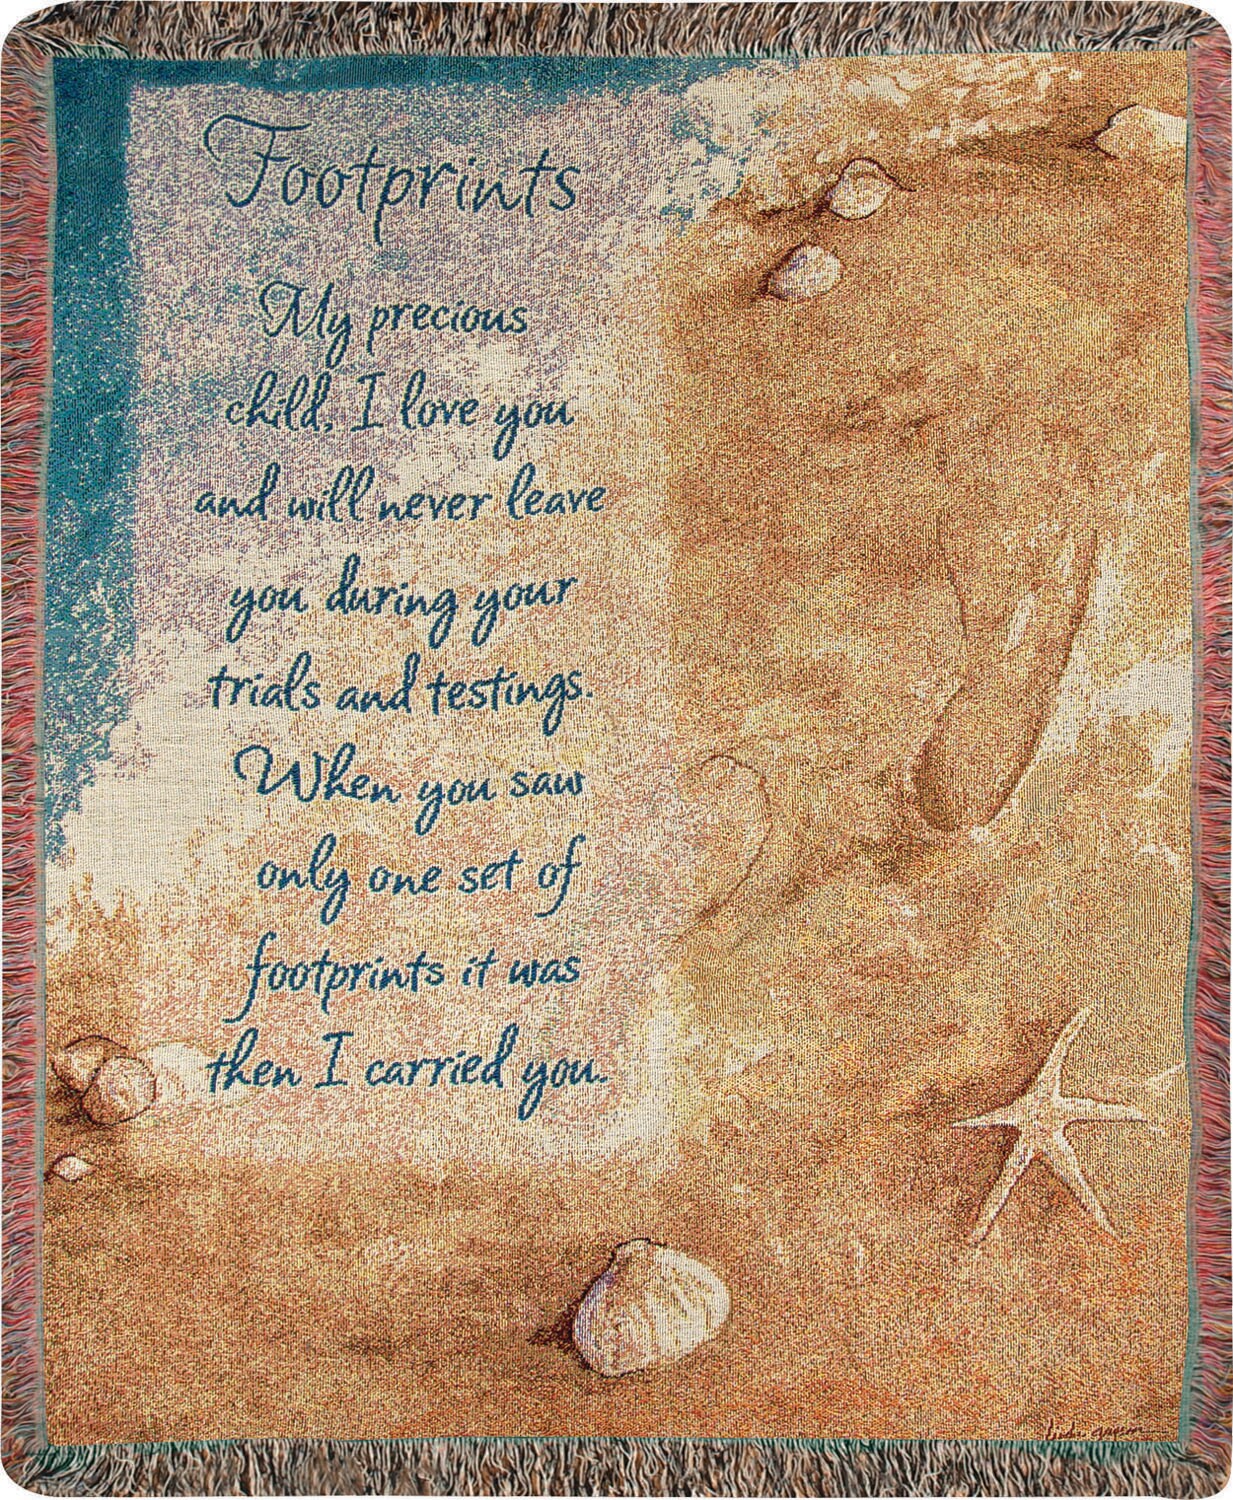 Footprints
My precious
child, I love you
and will never leave
you during your
trials and testings.
When you saw
only one set of
footprints it was
then I carried you.